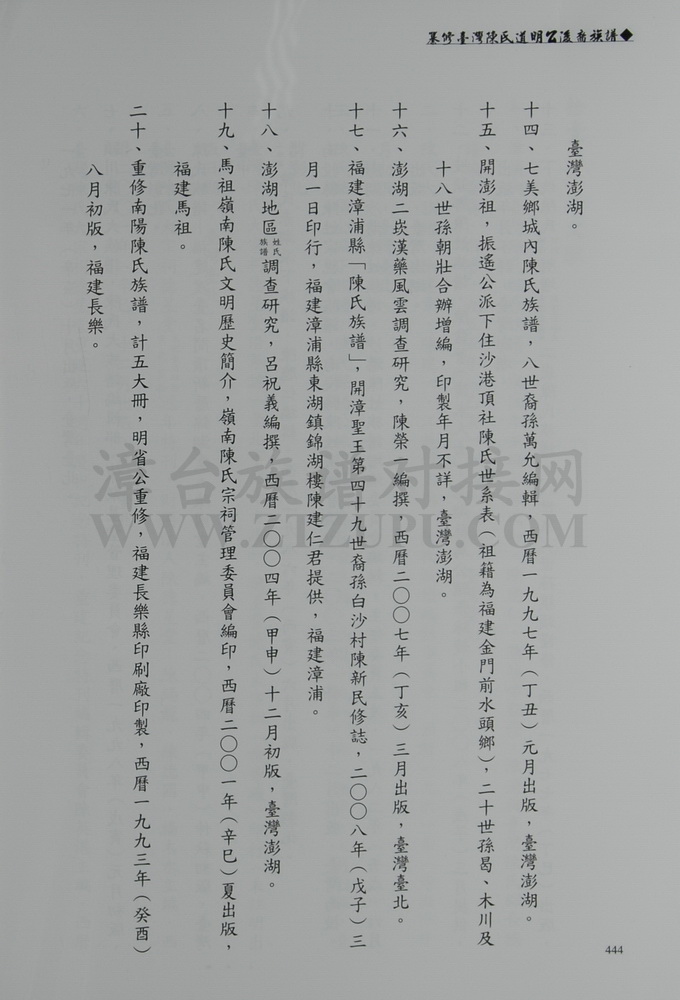 纂修臺灣陳氏道明公淩裔族譜◆
臺灣澎湖。
十四、七美鄉城內陳氏族譜，八世裔孫萬允編輯，西曆一九九七年（丁丑）元月出版，臺灣澎湖。
十五、開澎祖，振遙公派下住沙港頂社陳氏世系表（祖籍為福建金門前水頭鄉），二十世孫曷、木川及
十八世孫朝壯合辦增編，印製年月不詳，臺灣澎湖。
十六、澎湖二崁漢藥風雲調查研究，陳榮一編撰，西曆二〇〇七年（丁亥）三月出版，臺灣臺北。
十七、福建漳浦縣「陳氏族譜」，開漳聖王第四十九世裔孫白沙村陳新民修誌，二〇〇八年（戊子）三
月一日印行，福建漳浦縣東湖鎮錦湖樓陳建仁君提供，福建漳浦。
十八、澎湖地區姓氏族譜調查研究，呂祝義編撰，西曆二〇〇四年（甲申）十二月初版，臺灣澎湖。
十九、馬祖嶺南陳氏文明歷史簡介，嶺南陳氏宗祠管理委員會編印，西曆二〇〇一年（辛巳）夏出版，
福建馬祖。
二十、重修南陽陳氏族譜，計五大冊，明省公重修，福建長樂縣印刷廠印製，西曆一九九三年（癸酉）
八月初版，福建長樂。
444
漳台族谱对接网
WWW.ZTZUPU.COM